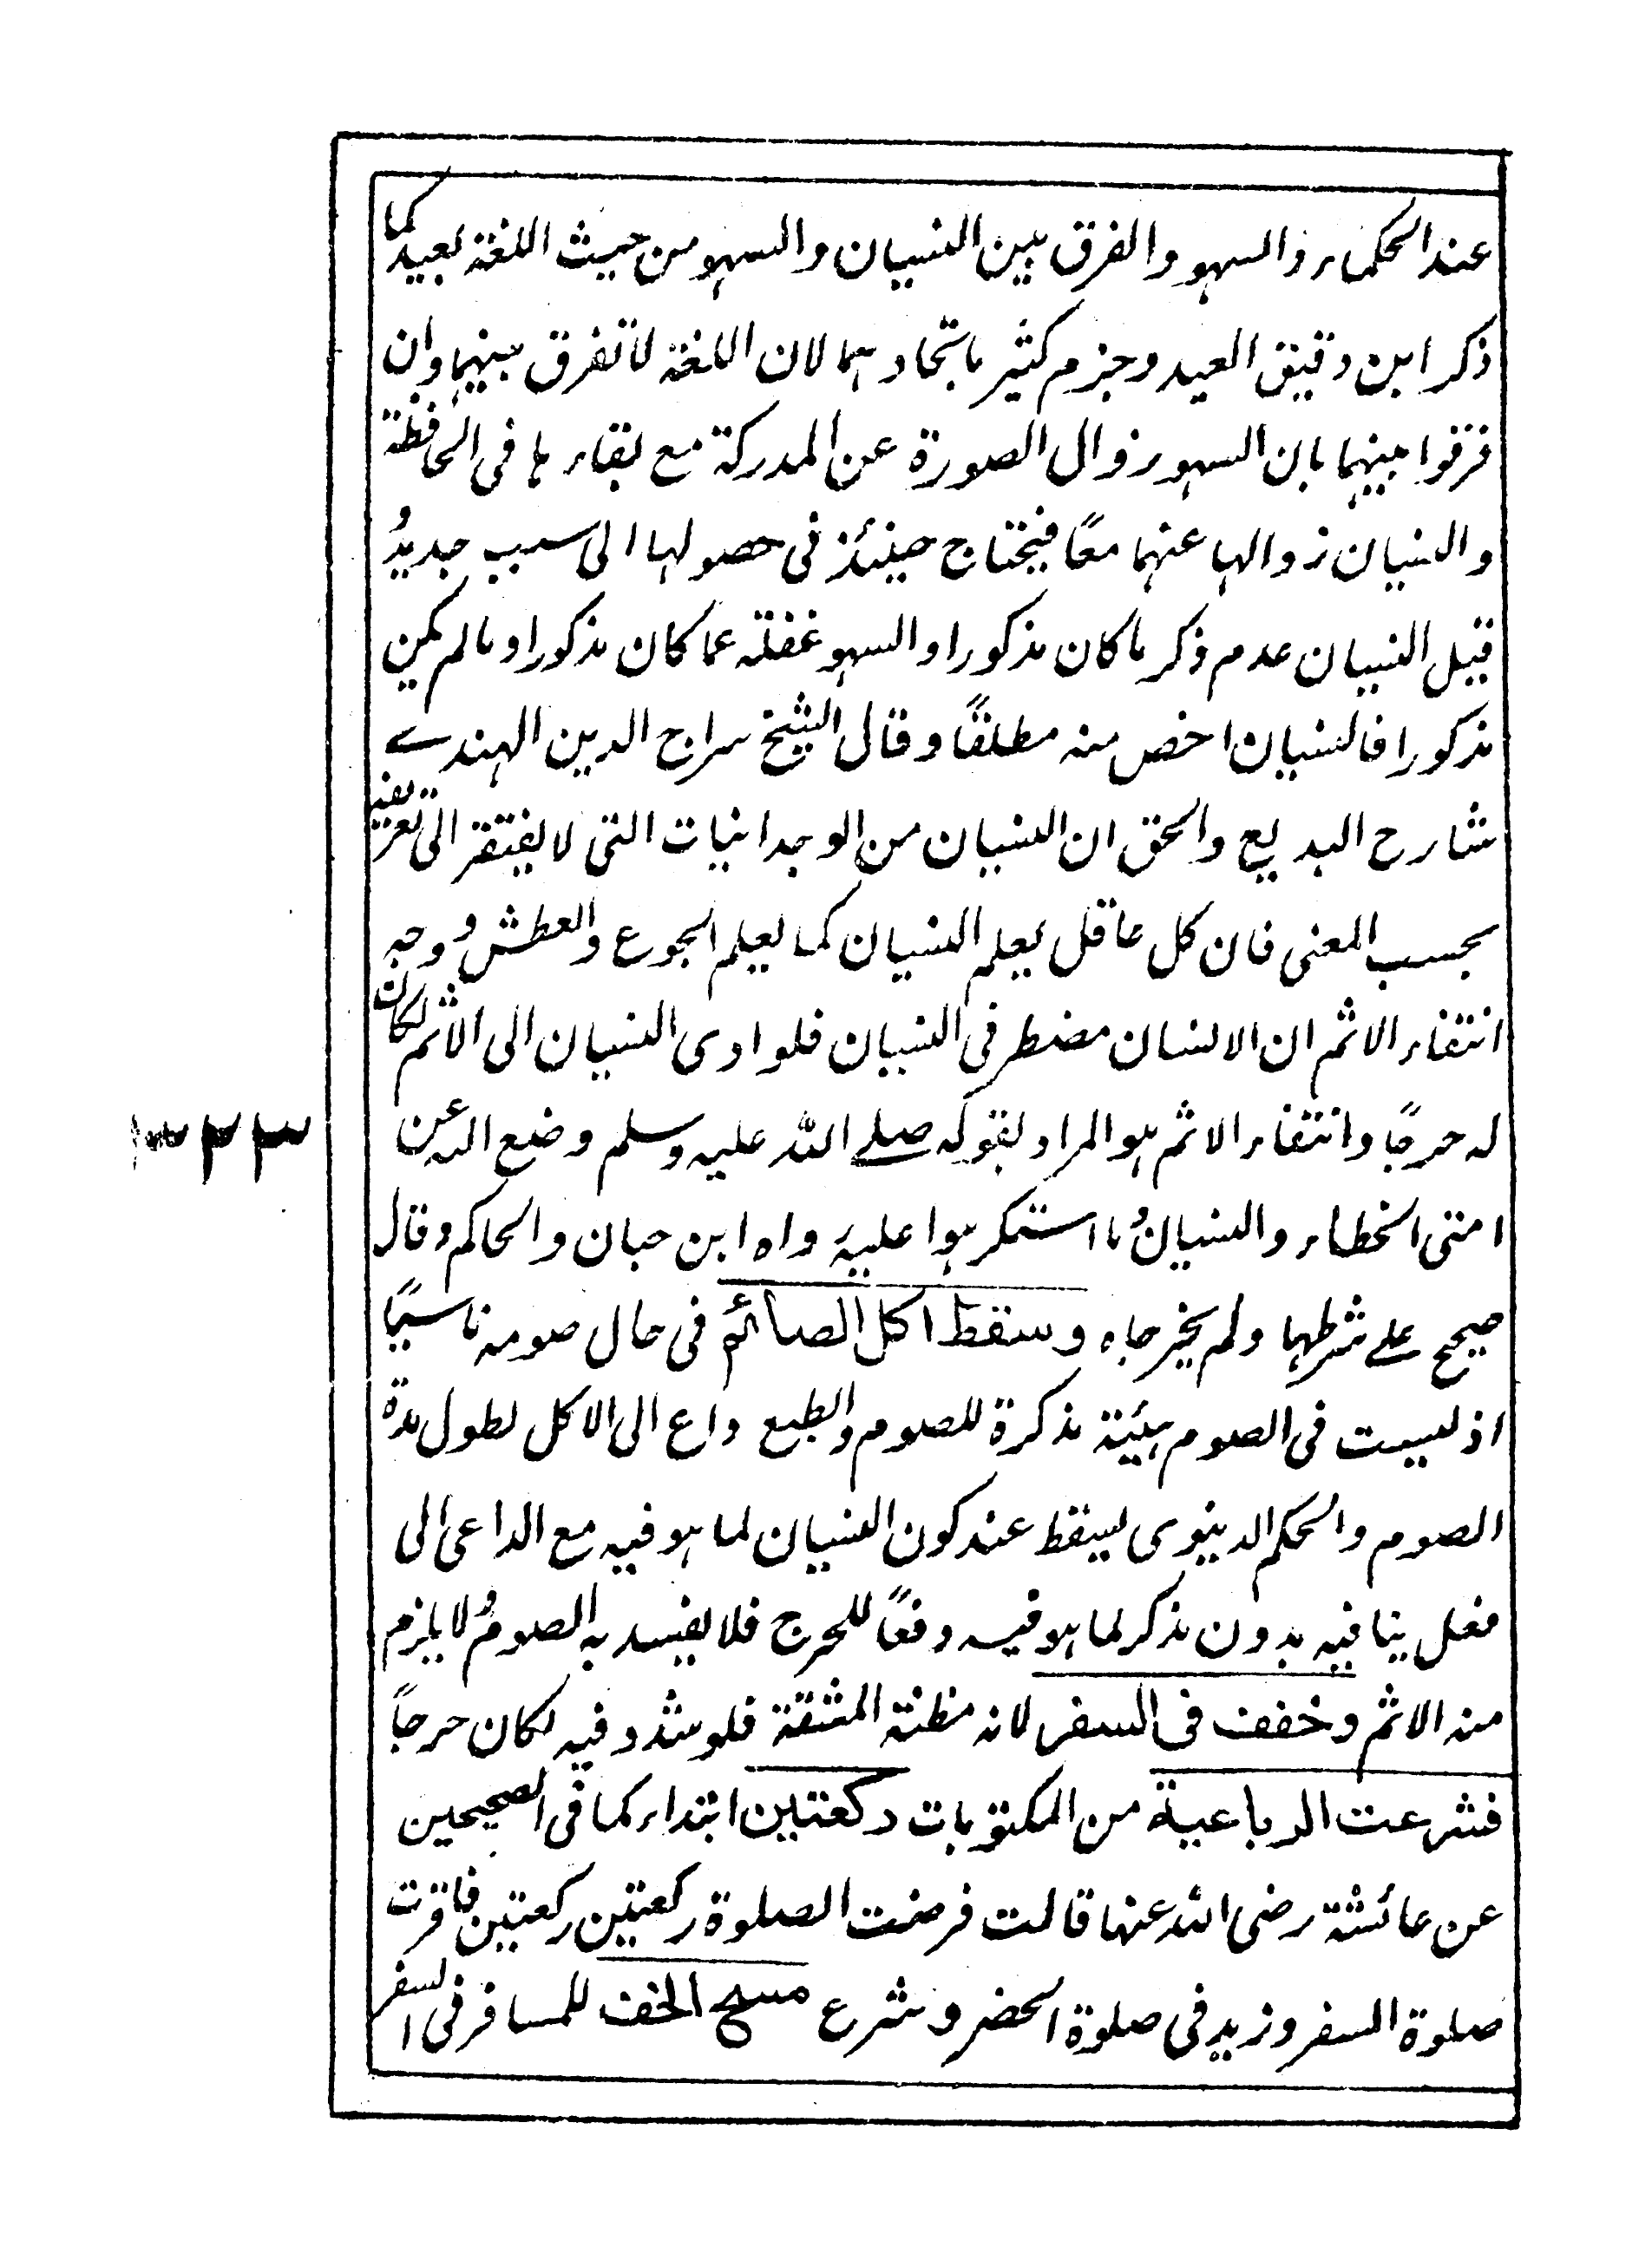 عند الحکماء والسهو والفرق بین النسیان والسهو من حیث اللغة بعید کما
ذکر ابن دقیق العید وجزم کثیر باتحادهما لان اللغة لا تفرق بینهما وان
فرقوا بینهما بان السهو زوال الصورة عن المدرکة مع بقاءها فی الحافظة
والنسیان زوالها عنهما معًا فیحتاج حینئذ فی حصولها الی سبب جدید و
قیل النسیان عدم ذکر ما کان مذکورا والسهو غفلة عما کان مذکورا وما لم یکن
مذکورا فالنسیان اخص منه مطلقًا وقال الشیخ سراج الدین الهندے
شارح البدیع والحق ان النسیان من الوجدانیات التی لا یفتقر الی تعریف
بحسب المعنی فان کل عاقل یعلم النسیان کما یعلم الجوع والعطش و وجه
انتفاء الاثم ان الانسان مضطر فی النسیان فلو ادی النسیان الی الاثم لکان
له حرجًا وانتفاء الاثم هو المراد بقوله صلے الله علیه وسلم وضع الله عن
امتی الخطاء والنسیان وما استکرهوا علیه رواه ابن حبان والحاکم وقال
صحیح علے شرطهما ولم یخرجاه وسقط اکل الصائم فی حال صومه ناسیًا
اذ لیست فی الصوم هیئة مذکرة للصوم والطبع داع الی الاکل لطول مدة
الصوم والحکم الدینوی یسقط عند کون النسیان لما هو فیه مع الداعی الی
فعل ینافیه بدون مذکر لما هو فیه دفعًا للحرج فلا یفسد به الصوم ولا یلزم
منه الاثم وخفف فی السفر لانه مظنة المشقة فلو شدد فیه لکان حرجًا
فشرعت الرباعیة من المکتوبات رکعتین ابتداء کما فی الصحیحین
عن عائشة رضی الله عنها قالت فرضت الصلوة رکعتین رکعتین فاقرت
صلوة السفر وزید فی صلوة الحضر وشرع مسح الخف للمسافر فی السفر